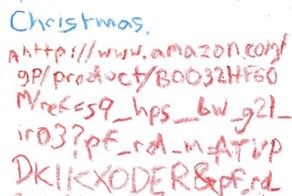 Christmas.
A http://www.amazon.com/
gp/product/B0032HF60
M/ref=s9_hps_bw_g21_
ir03?pf_rd_m=ATVP
DKIKX0DER&pf_rd_